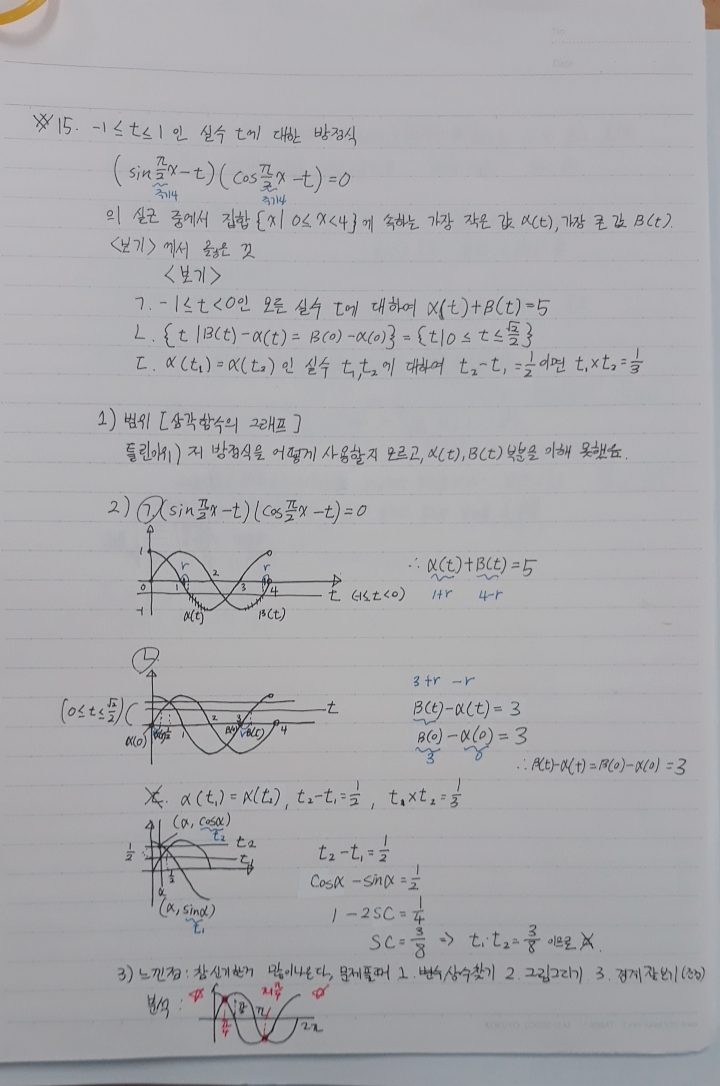 ※ 15. -1≤t≤1 인 실수 t에 대한 방정식
(sin π/2 x - t)(cos π/2 x - t) = 0
주기4 주기4
의 실근 중에서 집합 {x| 0≤x<4}에 속하는 가장 작은 값 α(t), 가장 큰 값 β(t).
<보기>에서 옳은 것
<보기>
ㄱ. -1≤t<0인 모든 실수 t에 대하여 α(t)+β(t)=5
ㄴ. {t|β(t)-α(t)=β(0)-α(0)}={t|0≤t≤√2/2}
ㄷ. α(t₁)=α(t₂)인 실수 t₁,t₂에 대하여 t₂-t₁=1/2이면 t₁×t₂=1/3
1) 범위 [삼각함수의 그래프]
틀린이유) 저 방정식을 어떻게 사용할지 모르고, α(t), β(t) 부분을 이해 못했음.
2) ㄱ. (sin π/2 x - t)(cos π/2 x - t) = 0
1 r r
0 1 2 3 4 t (-1≤t<0)
-1 α(t) β(t)
∴ α(t)+β(t)=5
1+r 4-r
ㄴ
(0≤t≤√2/2) t
α(0) 1/2 1 2 β(0) 3 r β(t) 4
3+r -r
β(t)-α(t)=3
β(0)-α(0)=3
3 0
∴ β(t)-α(t)=β(0)-α(0)=3
ㄷ. α(t₁)=α(t₂), t₂-t₁=1/2, t₁×t₂=1/3
(α, cosα)
t₂
1/2 t₂
t₁
1/2
α
(α, sinα)
t₁
t₂-t₁=1/2
cosα-sinα=1/2
1-2SC=1/4
SC=3/8 => t₁·t₂=3/8 이므로 X.
3) 느낀점: 참신기한게 많이나온다, 문제풀때 1. 변수상수찾기 2. 그림그리기 3. 경계
분석:
π/4 π 2π